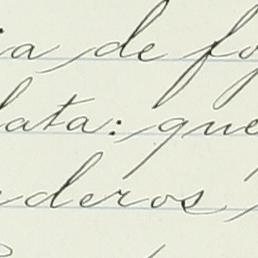 ia de fo
lata: que
aderos